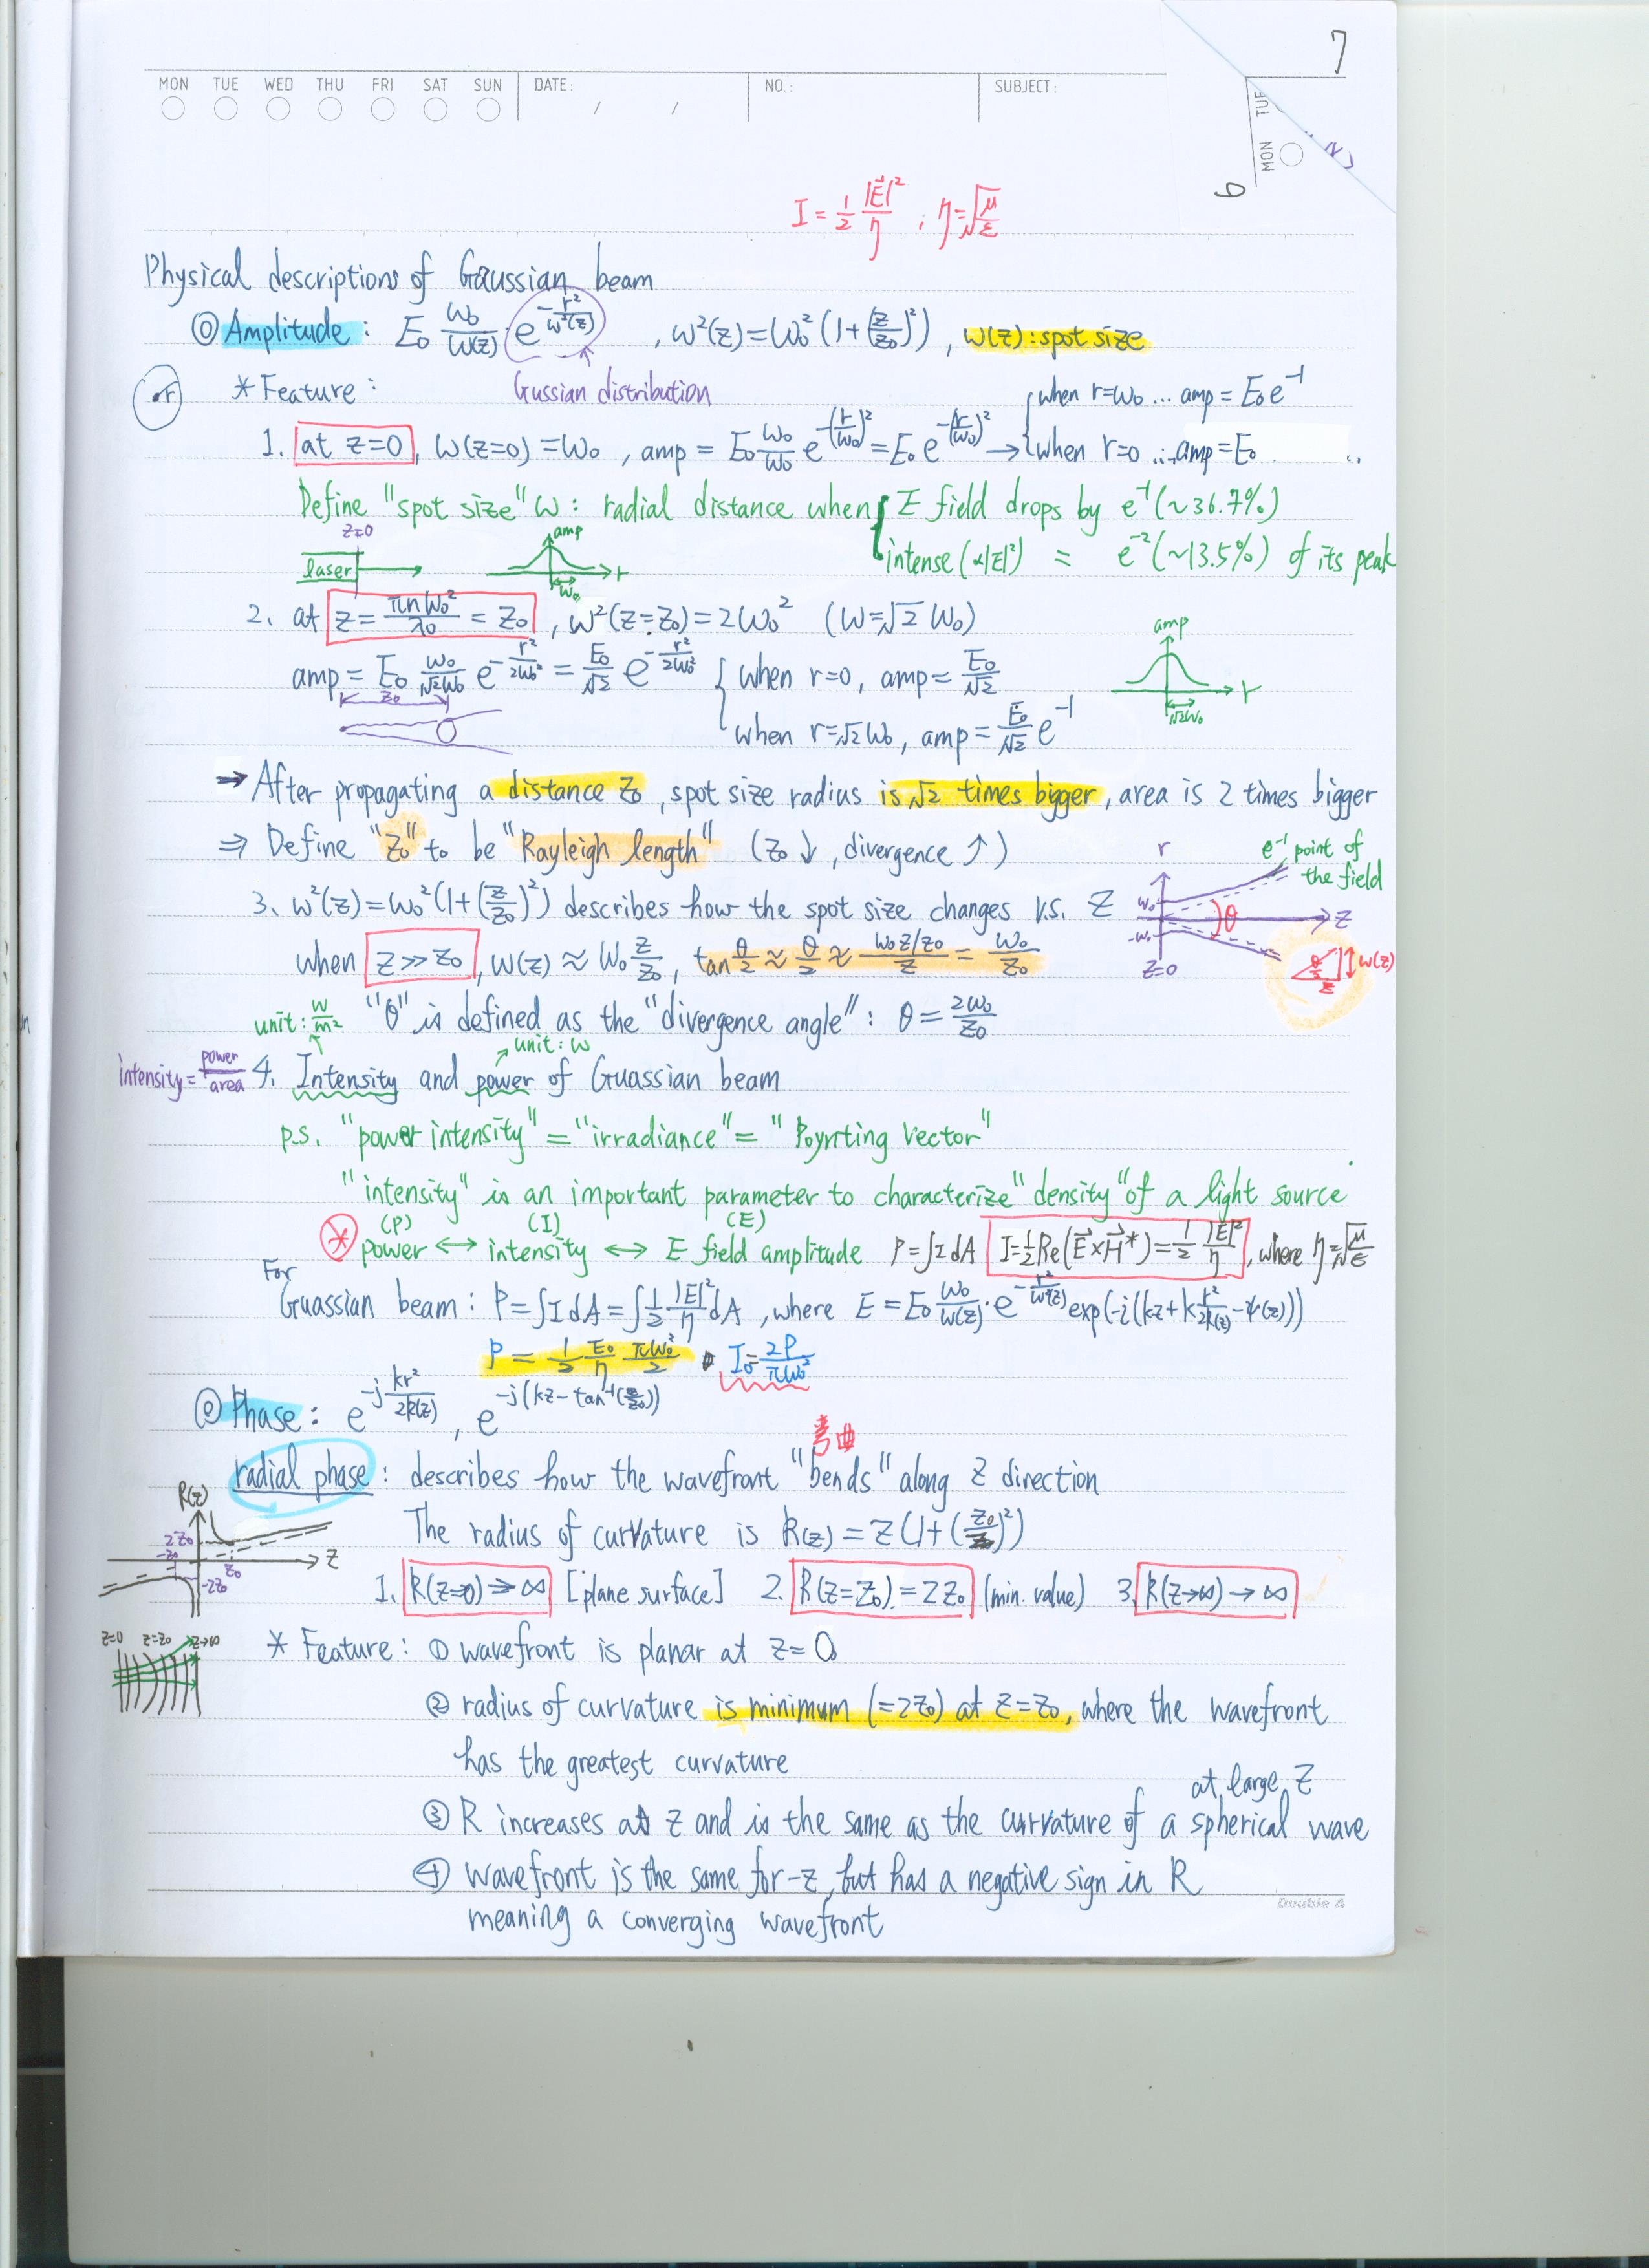 7
MON TUE WED THU FRI SAT SUN DATE: / / NO.: SUBJECT:
MON TUE
6
I = 1/2 |E⃗|²/η ; η=√(μ/ε)
Physical descriptions of Gaussian beam
◎ Amplitude: E₀ ω₀/ω(z) · e^(-r²/ω²(z)) , ω²(z)=ω₀²(1+(z/z₀)²) , ω(z): spot size
* Feature: Gussian distribution
when r=ω₀ ... amp = E₀e⁻¹
1. at z=0, ω(z=0)=ω₀ , amp = E₀ ω₀/ω₀ e^(-(r/ω₀)²) = E₀e^(-(r/ω₀)²) → when r=0 ... amp=E₀
Define "spot size" ω: radial distance when E field drops by e⁻¹ (~36.7%)
intense (α|E|²) = e⁻² (~13.5%) of its peak
z=0 laser amp r ω₀
2. at z = πnω₀²/λ₀ = z₀ , ω²(z=z₀)=2ω₀² (ω=√2 ω₀)
amp = E₀ ω₀/(√2ω₀) e^(-r²/2ω₀²) = E₀/√2 e^(-r²/2ω₀²) when r=0, amp= E₀/√2
when r=√2 ω₀, amp = E₀/√2 e⁻¹
z₀
amp r √2ω₀
→ After propagating a distance z₀, spot size radius is √2 times bigger, area is 2 times bigger
⇒ Define "z₀" to be "Rayleigh length" (z₀ ↓, divergence ↑)
3. ω²(z)=ω₀²(1+(z/z₀)²) describes how the spot size changes v.s. z
r e⁻¹ point of the field ω₀ -ω₀ θ z z=0 θ/2 z ω(z)
when z ≫ z₀, ω(z) ≈ ω₀ z/z₀, tan θ/2 ≈ θ/2 ≈ (ω₀z/z₀)/z = ω₀/z₀
"θ" is defined as the "divergence angle": θ = 2ω₀/z₀
unit: W/m² unit: W
intensity = power/area
4. Intensity and power of Guassian beam
p.s. "power intensity" = "irradiance" = "Poynting vector"
"intensity" is an important parameter to characterize "density" of a light source
(P) (I) (E)
* power ↔ intensity ↔ E field amplitude P=∫I dA I=1/2 Re(E⃗×H⃗*)=1/2 |E|²/η, where η=√(μ/ε)
For
Guassian beam: P=∫I dA=∫1/2 |E|²/η dA , where E = E₀ ω₀/ω(z) · e^(-r²/ω²(z)) exp(-i(kz+k r²/2R(z) -ψ(z)))
P = 1/2 E₀/η πω₀²/2 I₀=2P/πω₀²
◎ Phase: e^(-j kr²/2R(z)) , e^(-j(kz-tan⁻¹(z/z₀)))
弯曲
radial phase: describes how the wavefront "bends" along z direction
The radius of curvature is R(z) = z(1+(z₀/z)²)
R(z) 2z₀ -z₀ z₀ -2z₀ z
1. R(z=0) ⇒ ∞ [plane surface] 2. R(z=z₀)=2z₀ (min. value) 3. R(z→∞) → ∞
z=0 z=z₀ z→∞
* Feature: ① wavefront is planar at z=0
② radius of curvature is minimum (=2z₀) at z=z₀, where the wavefront
has the greatest curvature
at large z
③ R increases at z and is the same as the curvature of a spherical wave
④ wavefront is the same for -z, but has a negative sign in R
meaning a converging wavefront
Double A